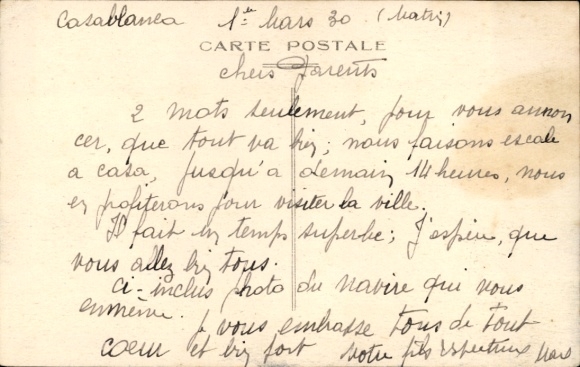 Casablanca 1er Mars 30 (Matin)
CARTE POSTALE
chers Parents
2 mots seulement, pour vous annon
cer, que tout va bien; nous faisons escale
a casa, jusqu'a demain 14 heures, nous
en profiterons pour visiter la ville.
Il fait un temps superbe; J'espère, que
vous allez bien tous.
ci-inclus photo du navire qui vous
emmène.
je vous embrasse tous de tout
coeur et bien fort votre fils respectueux